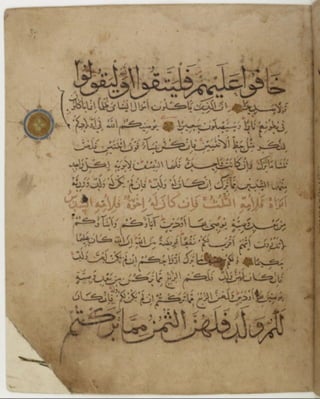 خافوا عليهم فليتقوا الله وليقولوا
قولا سديدا ان الذين ياكلون اموال اليتامى ظلما انما ياكلون
في بطونهم نارا وسيصلون سعيرا يوصيكم الله في اولادكم
للذكر مثل حظ الانثيين فان كن نساء فوق اثنتين فلهن
ثلثا ما ترك وان كانت واحدة فلها النصف ولابويه لكل واحد
منهما السدس مما ترك ان كان له ولد فان لم يكن له ولد وورثه
ابواه فلامه الثلث فان كان له اخوة فلامه السدس
من بعد وصية يوصي بها او دين اباؤكم وابناؤكم
لا تدرون ايهم اقرب لكم نفعا فريضة من الله ان الله كان عليما
حكيما ولكم نصف ما ترك ازواجكم ان لم يكن لهن ولد
فان كان لهن ولد فلكم الربع مما تركن من بعد وصية
يوصين بها او دين ولهن الربع مما تركتم ان لم يكن لكم ولد فان كان
لكم ولد فلهن الثمن مما تركتم